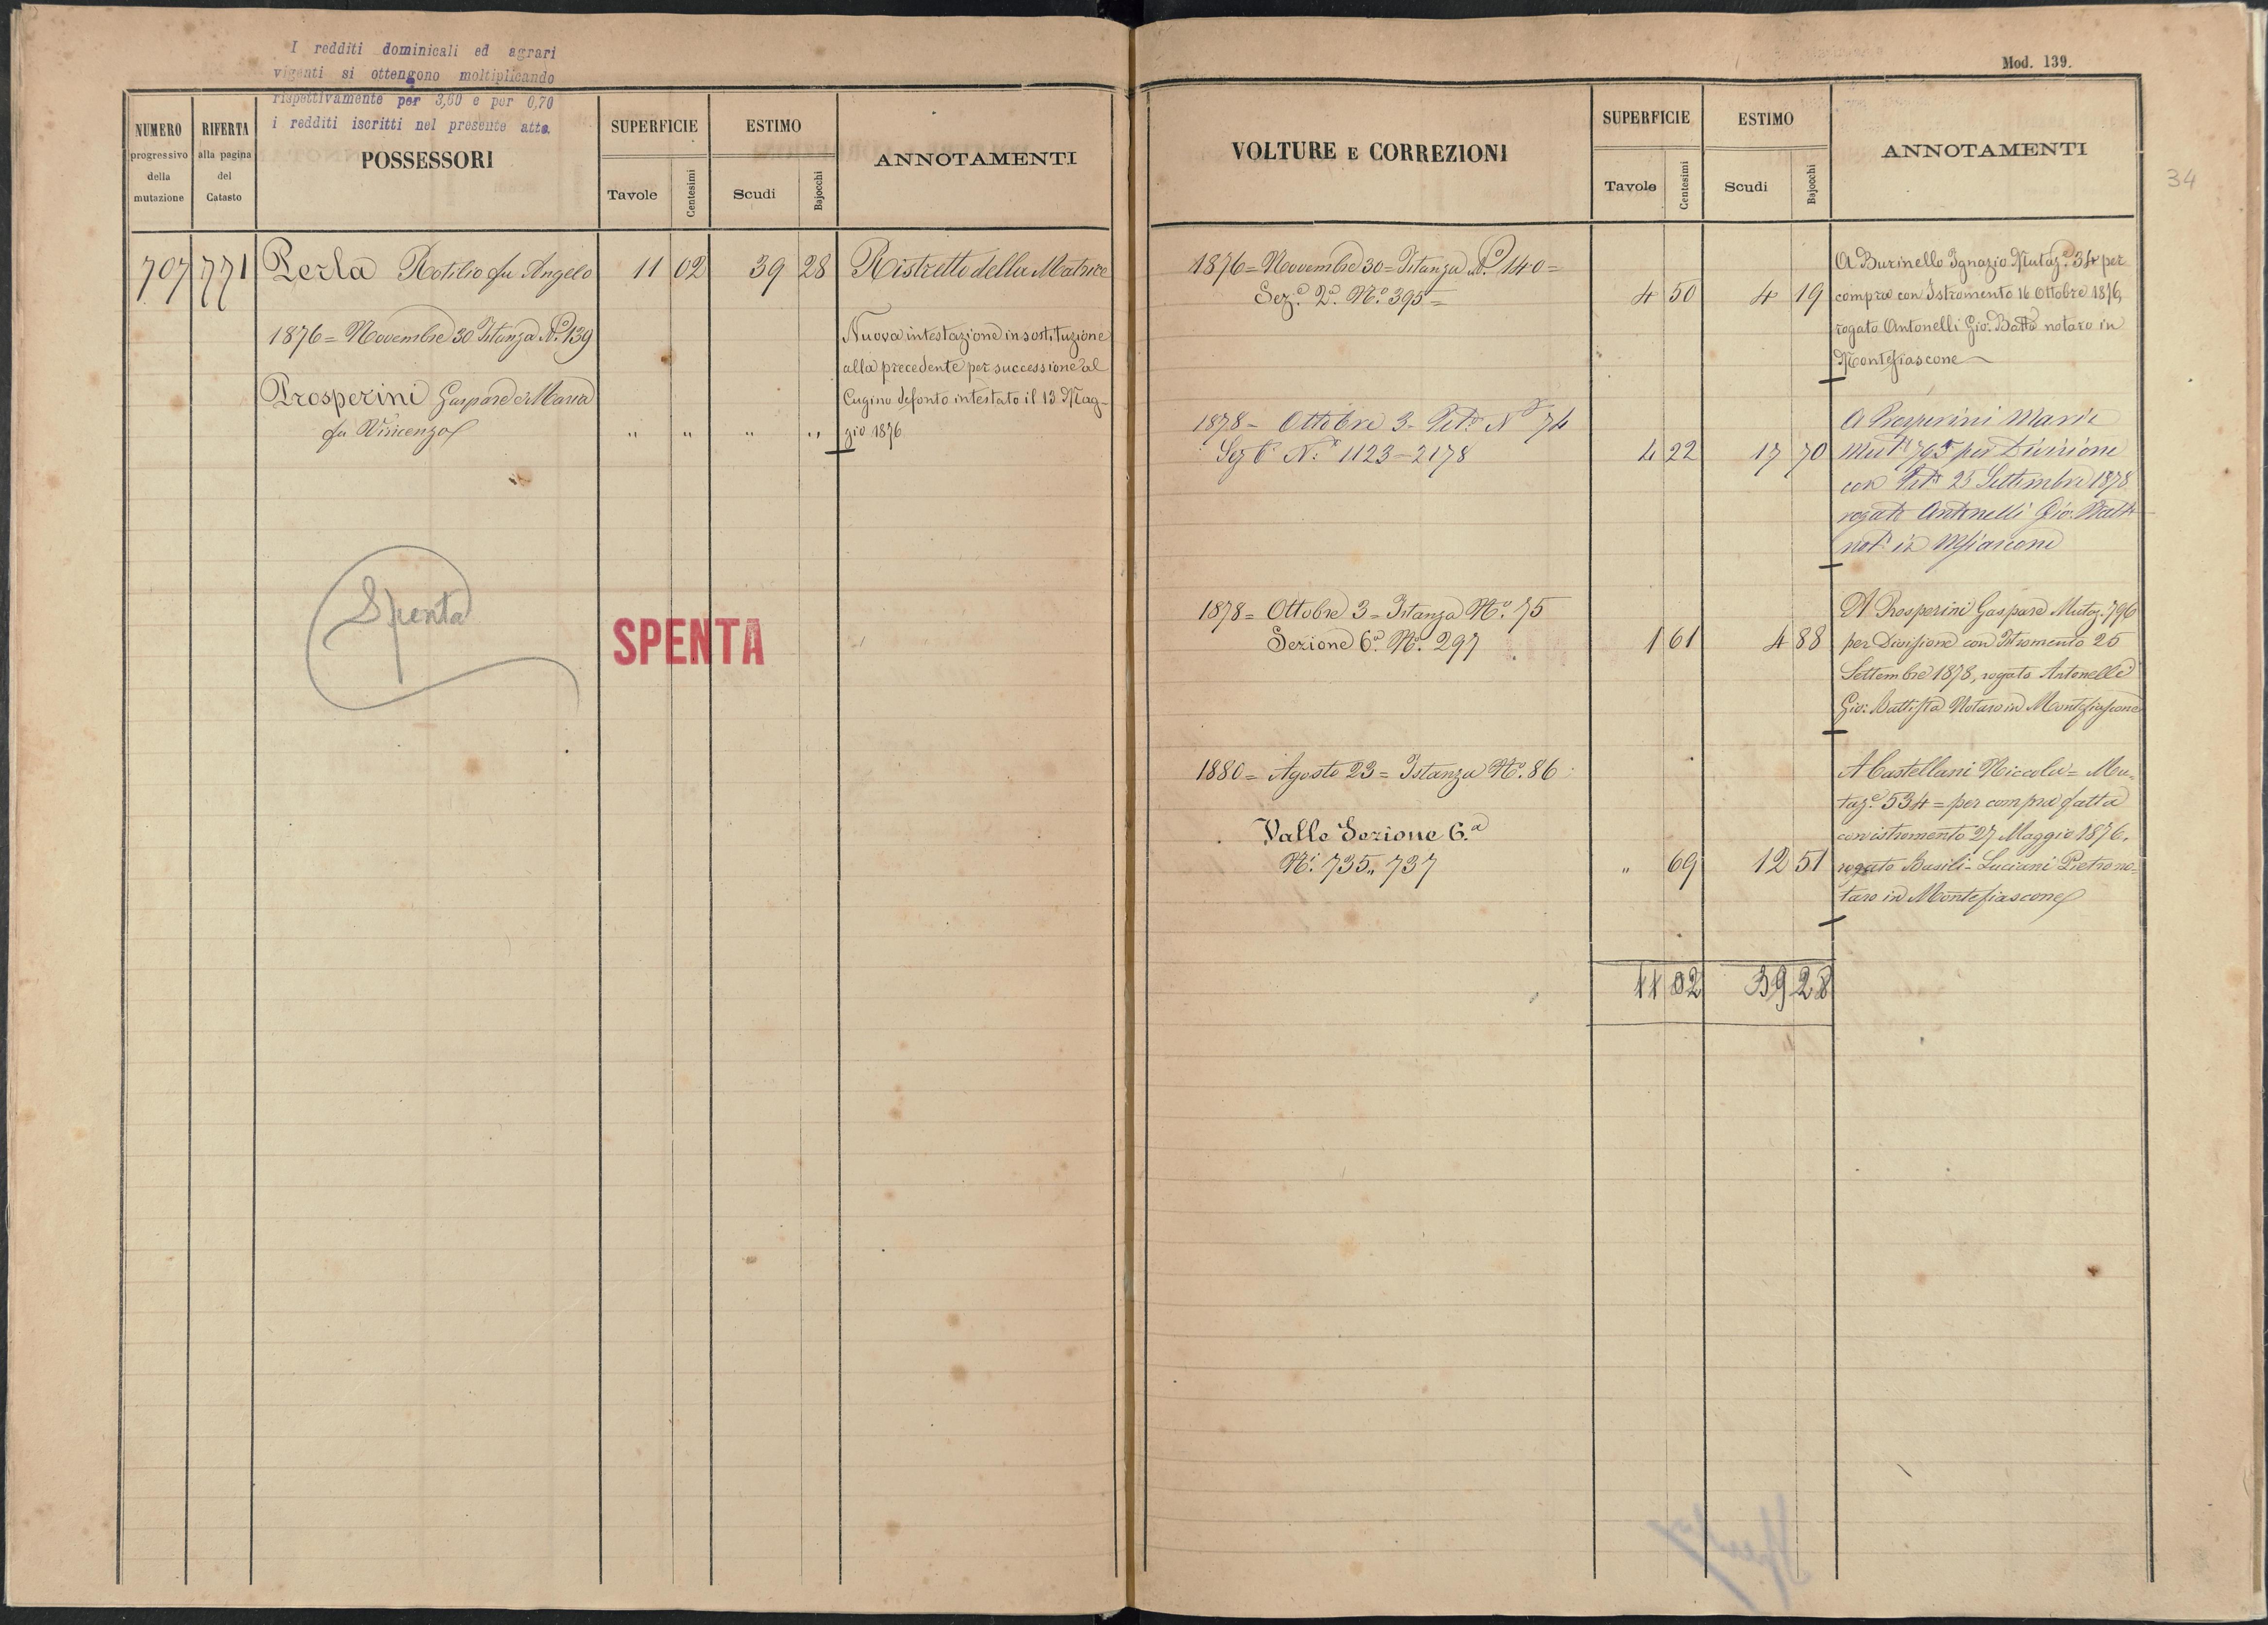 I redditi dominicali ed agrari
vigenti si ottengono moltiplicando
rispettivamente per 3,60 e per 0,70
i redditi iscritti nel presente atto.
NUMERO
progressivo
della
mutazione
RIFERTA
alla pagina
del
Catasto
POSSESSORI
SUPERFICIE
Tavole
Centesimi
ESTIMO
Scudi
Bajocchi
ANNOTAMENTI
707 771 Perla Rotilio fu Angelo 11 02 39 28 Ristretto della Matrice
1876 = Novembre 30 Istanza N.º 139
Nuova intestazione in sostituzione
alla precedente per successione al
Cugino defonto intestato il 13 Mag-
gio 1876
Prosperini Gaspare e Maria
fu Vincenzo " " " "
Spenta
SPENTA
Mod. 139.
34
VOLTURE E CORREZIONI
SUPERFICIE
Tavole
Centesimi
ESTIMO
Scudi
Bajocchi
ANNOTAMENTI
1876 = Novembre 30 = Istanza N.º 140 =
Sez.e 2.a N.º 395 = 4 50 4 19
A Burinello Ignazio Mutaz.e 34 per
compra con Istromento 16 Ottobre 1876,
rogato Antonelli Gio. Batta notaro in
Montefiascone
1878 - Ottobre 3 - N.º 74
Sez 6 N.i 1123 - 2178 4 22 17 70
A Prosperini Maria
Mut. 795 per Divisione
con 25 Settembre 1878
rogato Antonelli Gio. Batt.
not. in Mfiascone
1878 = Ottobre 3 = Istanza N.º 75
Sezione 6.a N.º 297 1 61 4 88
A Prosperini Gaspare Mutaz. 796
per Divisione con Istromento 25
Settembre 1878, rogato Antonelli
Gio: Battista Notaro in Montefiascone
1880 = Agosto 23 = Istanza N.º 86
Valle Sezione 6.a
N.i 735,, 737 " 69 12 51
A Castellani Niccola = Mu-
taz.e 534 = per compra fatta
con istromento 27 Maggio 1876,
rogato Basili-Luciani Pietro no-
taro in Montefiascone
11 02 39 28